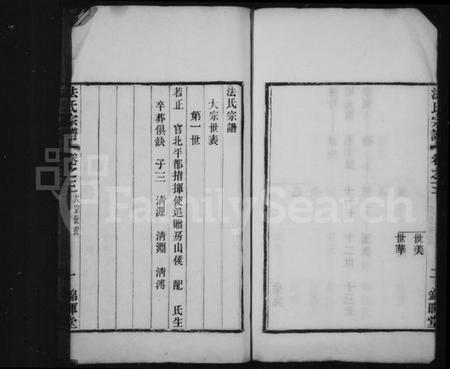 法氏宗譜
大宗世表
第一世
若正 官北平都指揮使追贈房山侯 配 氏生
卒葬俱缺 子三 清源 清淵 清溥
法氏宗譜 卷之三 大宗世表 一 錦暉堂
法氏宗譜 卷之三 二 錦暉堂
世美
世華
FamilySearch